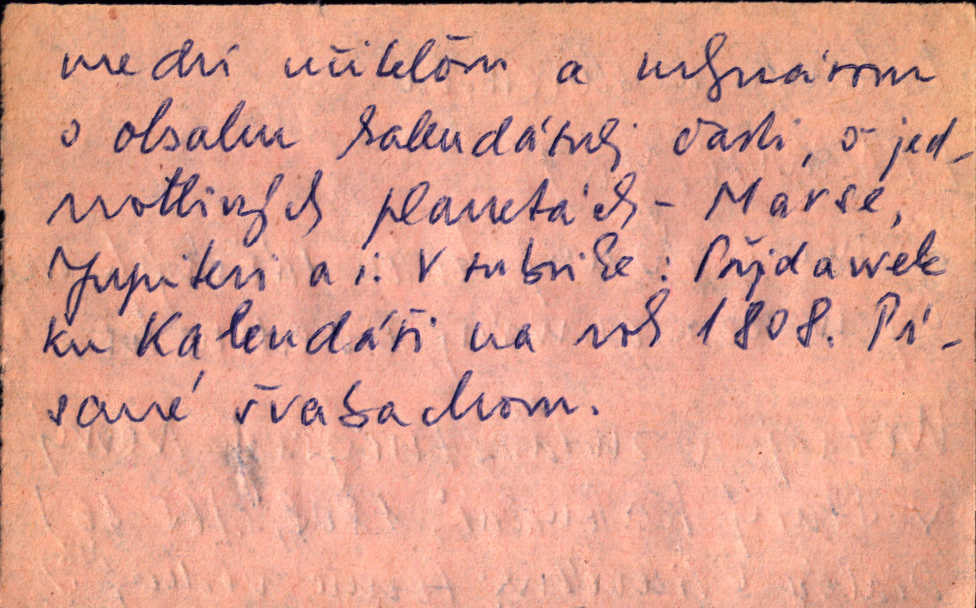 medzi učiteľom a mlynárom
o obsahu kalendárnej časti, o jed-
notlivých planetách - Marse,
Jupiteri a i. V rubrike: Přjdawek
ku Kalendáři na rok 1808. Pí-
sané švabachom.